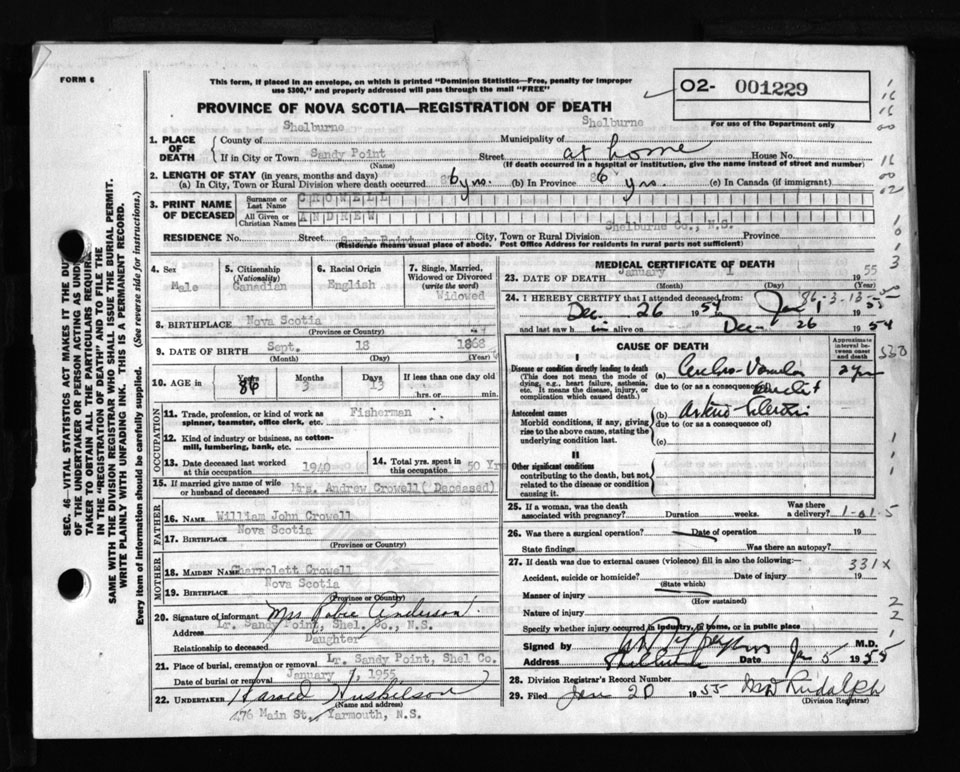 FORM 6
This form, if placed in an envelope, on which is printed "Dominion Statistics—Free, penalty for improper
use $300," and properly addressed will pass through the mail "FREE"
02- 001229
For use of the Department only
PROVINCE OF NOVA SCOTIA—REGISTRATION OF DEATH
1. PLACE OF DEATH
County of Shelburne Municipality of Shelburne
If in City or Town Sandy Point Street at home House No.
(Name) (If death occurred in a hospital or institution, give the name instead of street and number)
2. LENGTH OF STAY (in years, months and days)
(a) In City, Town or Rural Division where death occurred 86 yrs. (b) In Province 86 yrs. (c) In Canada (if immigrant)
3. PRINT NAME OF DECEASED
Surname or Last Name CROWELL
All Given or Christian Names ANDREW
Shelburne Co., N.S.
RESIDENCE No. Street Sandy Point City, Town or Rural Division Province
(Residence means usual place of abode. Post Office Address for residents in rural parts not sufficient)
4. Sex Male
5. Citizenship (Nationality) Canadian
6. Racial Origin English
7. Single, Married, Widowed or Divorced (write the word) Widowed
8. BIRTHPLACE Nova Scotia
(Province or Country)
9. DATE OF BIRTH Sept. 18 1868
(Month) (Day) (Year)
10. AGE in Years 86 Months 3 Days 13 If less than one day old
hrs. or min.
OCCUPATION
11. Trade, profession, or kind of work as spinner, teamster, office clerk, etc. Fisherman
12. Kind of industry or business, as cotton-mill, lumbering, bank, etc.
13. Date deceased last worked at this occupation 1940
14. Total yrs. spent in this occupation 50 Yrs
15. If married give name of wife or husband of deceased Mrs. Andrew Crowell (Deceased)
FATHER
16. NAME William John Crowell
17. BIRTHPLACE Nova Scotia
(Province or Country)
MOTHER
18. MAIDEN NAME Charrolett Crowell
19. BIRTHPLACE Nova Scotia
(Province or Country)
20. Signature of informant Mrs Robie Anderson
Address Lr. Sandy Point, Shel. Co., N.S.
Relationship to deceased Daughter
21. Place of burial, cremation or removal Lr. Sandy Point, Shel Co.
Date of burial or removal January , 1955
22. UNDERTAKER Harold Huskilson
(Name and address)
76 Main St., Yarmouth, N.S.
MEDICAL CERTIFICATE OF DEATH
23. DATE OF DEATH January 1 1955
(Month) (Day) (Year)
24. I HEREBY CERTIFY that I attended deceased from: 86-3-13
Dec. 26 1954 to Jan 1 1955
and last saw him alive on Dec 26 1954
CAUSE OF DEATH
Approximate interval between onset and death
I
Disease or condition directly leading to death
(This does not mean the mode of dying, e.g., heart failure, asthenia, etc. It means the disease, injury, or complication which caused death.)
(a) Cerebro-Vascular accident
due to (or as a consequence of)
Antecedent causes
Morbid conditions, if any, giving rise to the above cause, stating the underlying condition last.
(b) Arterio-Sclerosis
due to (or as a consequence of)
(c)
II
Other significant conditions
contributing to the death, but not related to the disease or condition causing it.
25. If a woman, was the death associated with pregnancy? Duration weeks. Was there a delivery?
26. Was there a surgical operation? Date of operation 19
State findings Was there an autopsy?
27. If death was due to external causes (violence) fill in also the following:- 331X
Accident, suicide or homicide? Date of injury 19
(State which)
Manner of injury
(How sustained)
Nature of injury
Specify whether injury occurred in industry, in home, or in public place
Signed by M.D.
Address Shelburne Date Jan 5 1955
28. Division Registrar's Record Number
29. Filed Jan 20 1955 Rudolph
(Division Registrar)
SEC. 46 VITAL STATISTICS ACT MAKES IT THE DUTY
OF THE UNDERTAKER OR PERSON ACTING AS UNDERTAKER
TAKER TO OBTAIN ALL THE PARTICULARS REQUIRED
IN THE "REGISTRATION OF DEATH" AND TO FILE THE
SAME WITH THE DIVISION REGISTRAR WHO SHALL ISSUE THE BURIAL PERMIT.
WRITE PLAINLY WITH UNFADING INK. THIS IS A PERMANENT RECORD.
Every item of information should be carefully supplied. (See reverse side for instructions.)